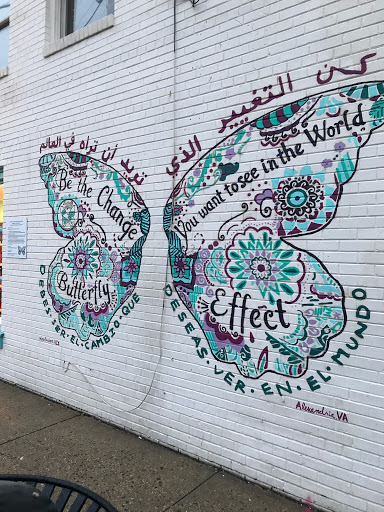 كن التغيير الذي
تريد أن تراه في العالم
Be the Change
You want to see in the World
Butterfly
Effect
DEBES·SER·EL·CAMBIO·QUE
DESEAS·VER·EN·EL·MUNDO
Alexandria VA